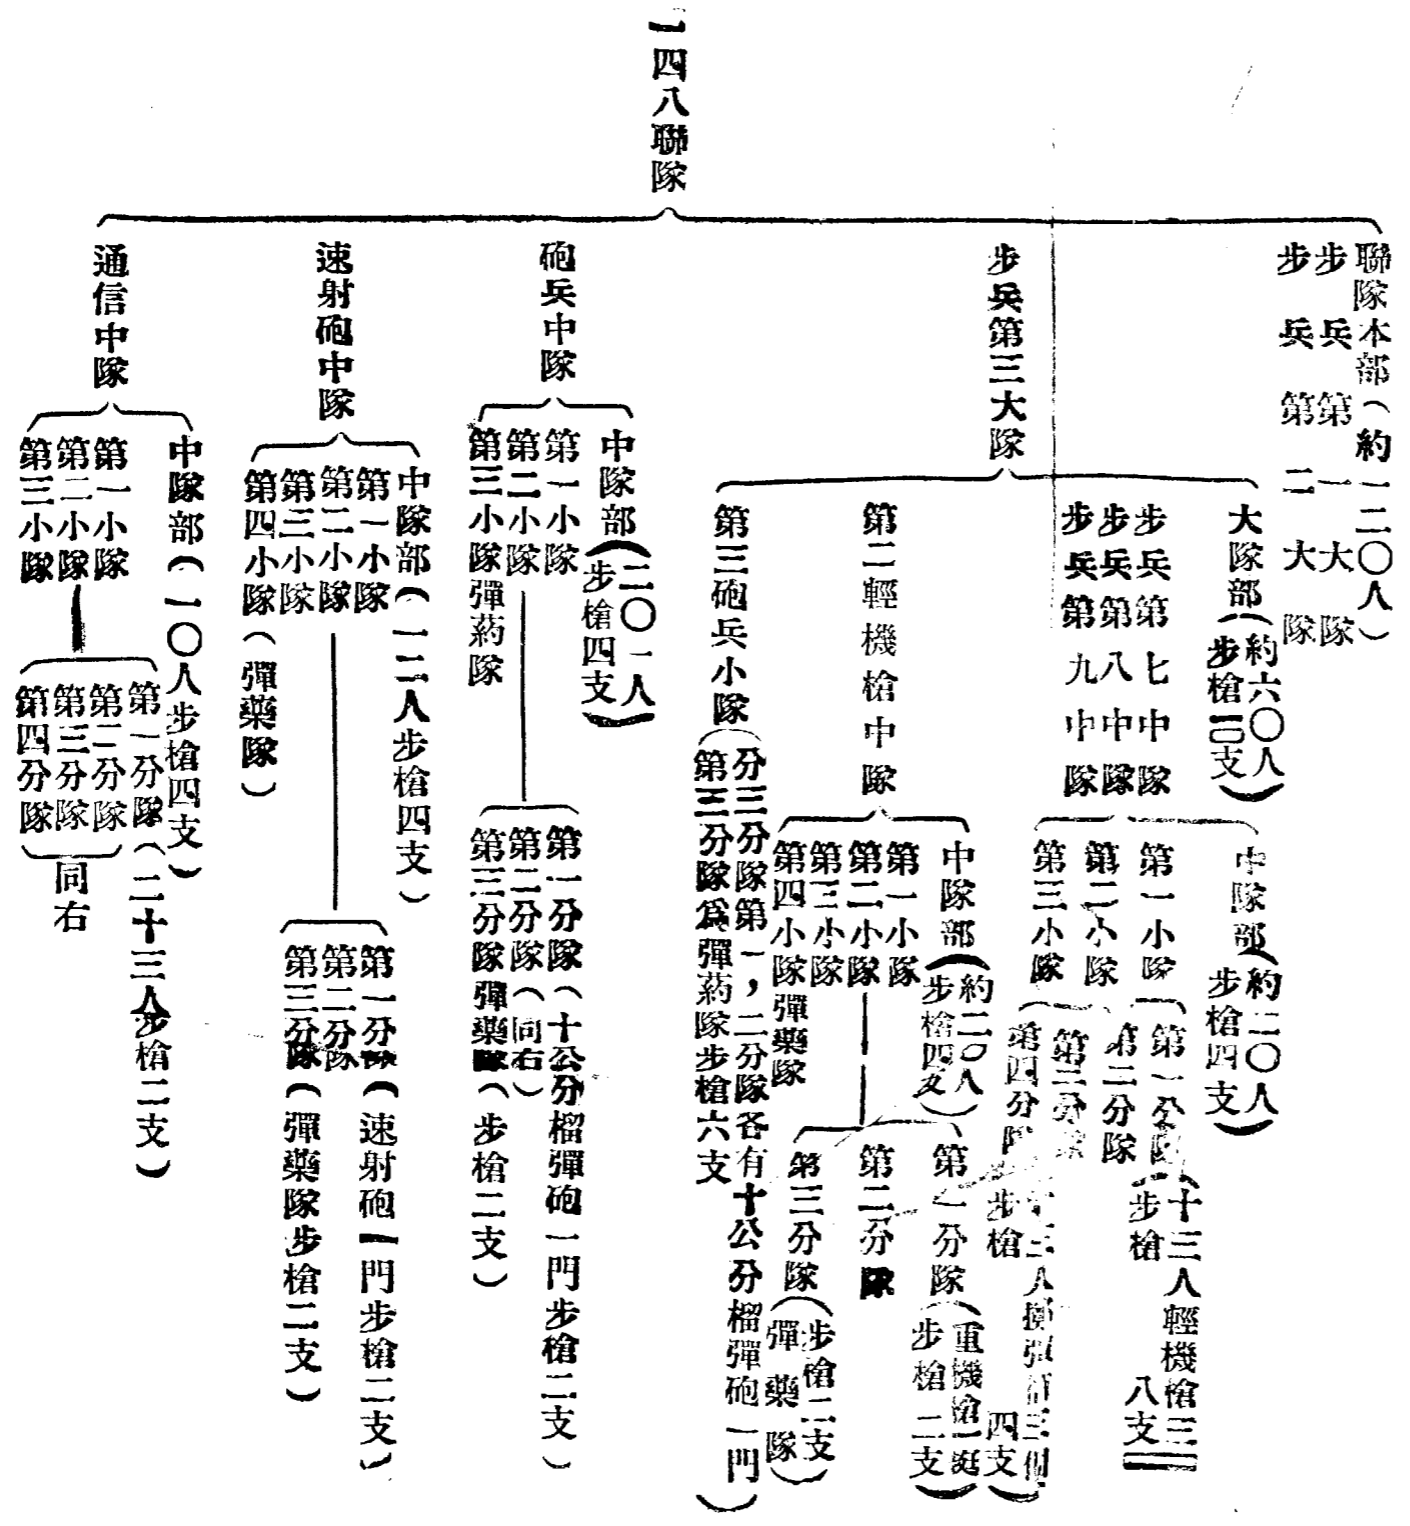 一四八聯隊
聯隊本部（約一二〇人）
步兵第一大隊
步兵第二大隊
步兵第三大隊
大隊部（約六〇人
步槍二〇支）
步兵第七中隊
步兵第八中隊
步兵第九中隊
中隊部（約二〇人
步槍四支）
第一小隊
第二小隊
第三小隊
第一分隊（十三人輕機槍三
步槍八支
第二分隊
第三分隊
第四分隊
十三人擲彈筒三個
步槍四支）
第二輕機槍中隊
中隊部（約二〇人
步槍四支）
第一小隊
第二小隊
第三小隊
第四小隊彈藥隊
第一分隊（重機槍一挺
步槍二支）
第二分隊
第三分隊（步槍二支
彈藥隊）
第三砲兵小隊（分三分隊第一，二分隊各有十公分榴彈砲一門）
第三分隊為彈葯隊步槍六支
砲兵中隊
中隊部（二〇一人
步槍四支）
第一小隊
第二小隊
第三小隊彈葯隊
第一分隊（十公分榴彈砲一門步槍二支）
第二分隊（同右）
第三分隊彈藥隊（步槍二支）
速射砲中隊
中隊部（一二人步槍四支）
第一小隊
第二小隊
第三小隊
第四小隊（彈藥隊）
第一分隊（速射砲一門步槍二支）
第二分隊
第三分隊（彈藥隊步槍二支）
通信中隊
中隊部（一〇人步槍四支）
第一小隊
第二小隊
第三小隊
第一分隊（二十三人步槍二支）
第二分隊
第三分隊
第四分隊
同右